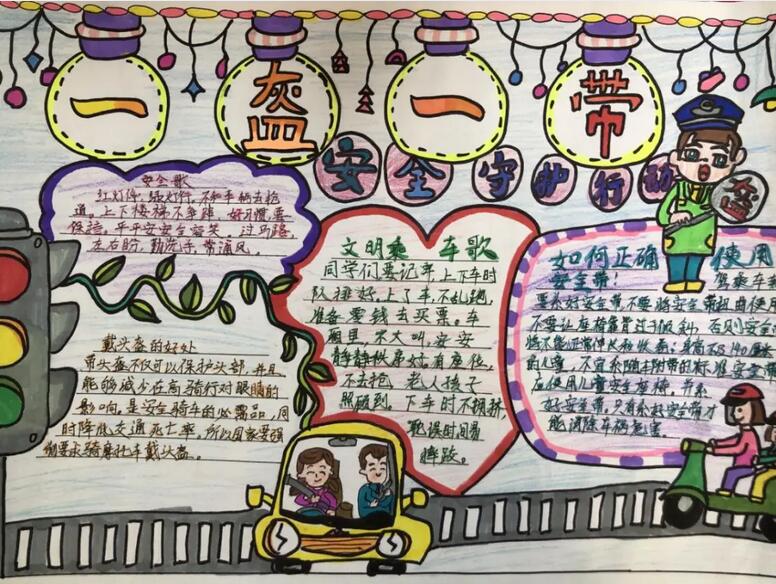 一盔一带
安全守护行动
盔
安全歌
红灯停，绿灯行，不和车辆去抢
道。上下楼梯不奔跑，好习惯要
保持。平平安安全家笑，过马路，
左右盼，勤洗手，常通风。
戴头盔的好处
带头盔不仅可以保护头部，并且
能够减少在高骑行对眼睛的
影响，是安全骑车的必需品，同
时降低交通死亡率，所以国家要强
制要求骑摩托车戴头盔。
文明乘车歌
同学们要记牢，上下车时
队排好，上了车，不乱跑，
准备零钱去买票。车
厢里，不大叫，安安
静静秩序好，有座位，
不去抢，老人孩子
照顾到，下车时不拥挤，
耽误时间易
摔跤。
如何正确使用
安全带：驾乘车要
要系好安全带，不要将安全带扭曲使用
不要让座椅靠背过于倾斜，否则安全
将不能正常伸长和收卷。身高不足140厘米
的儿童，不宜系随车附带的标准安全带
应使用儿童安全座椅，并系
好安全带，只有系好安全带才
能消除车祸危害。